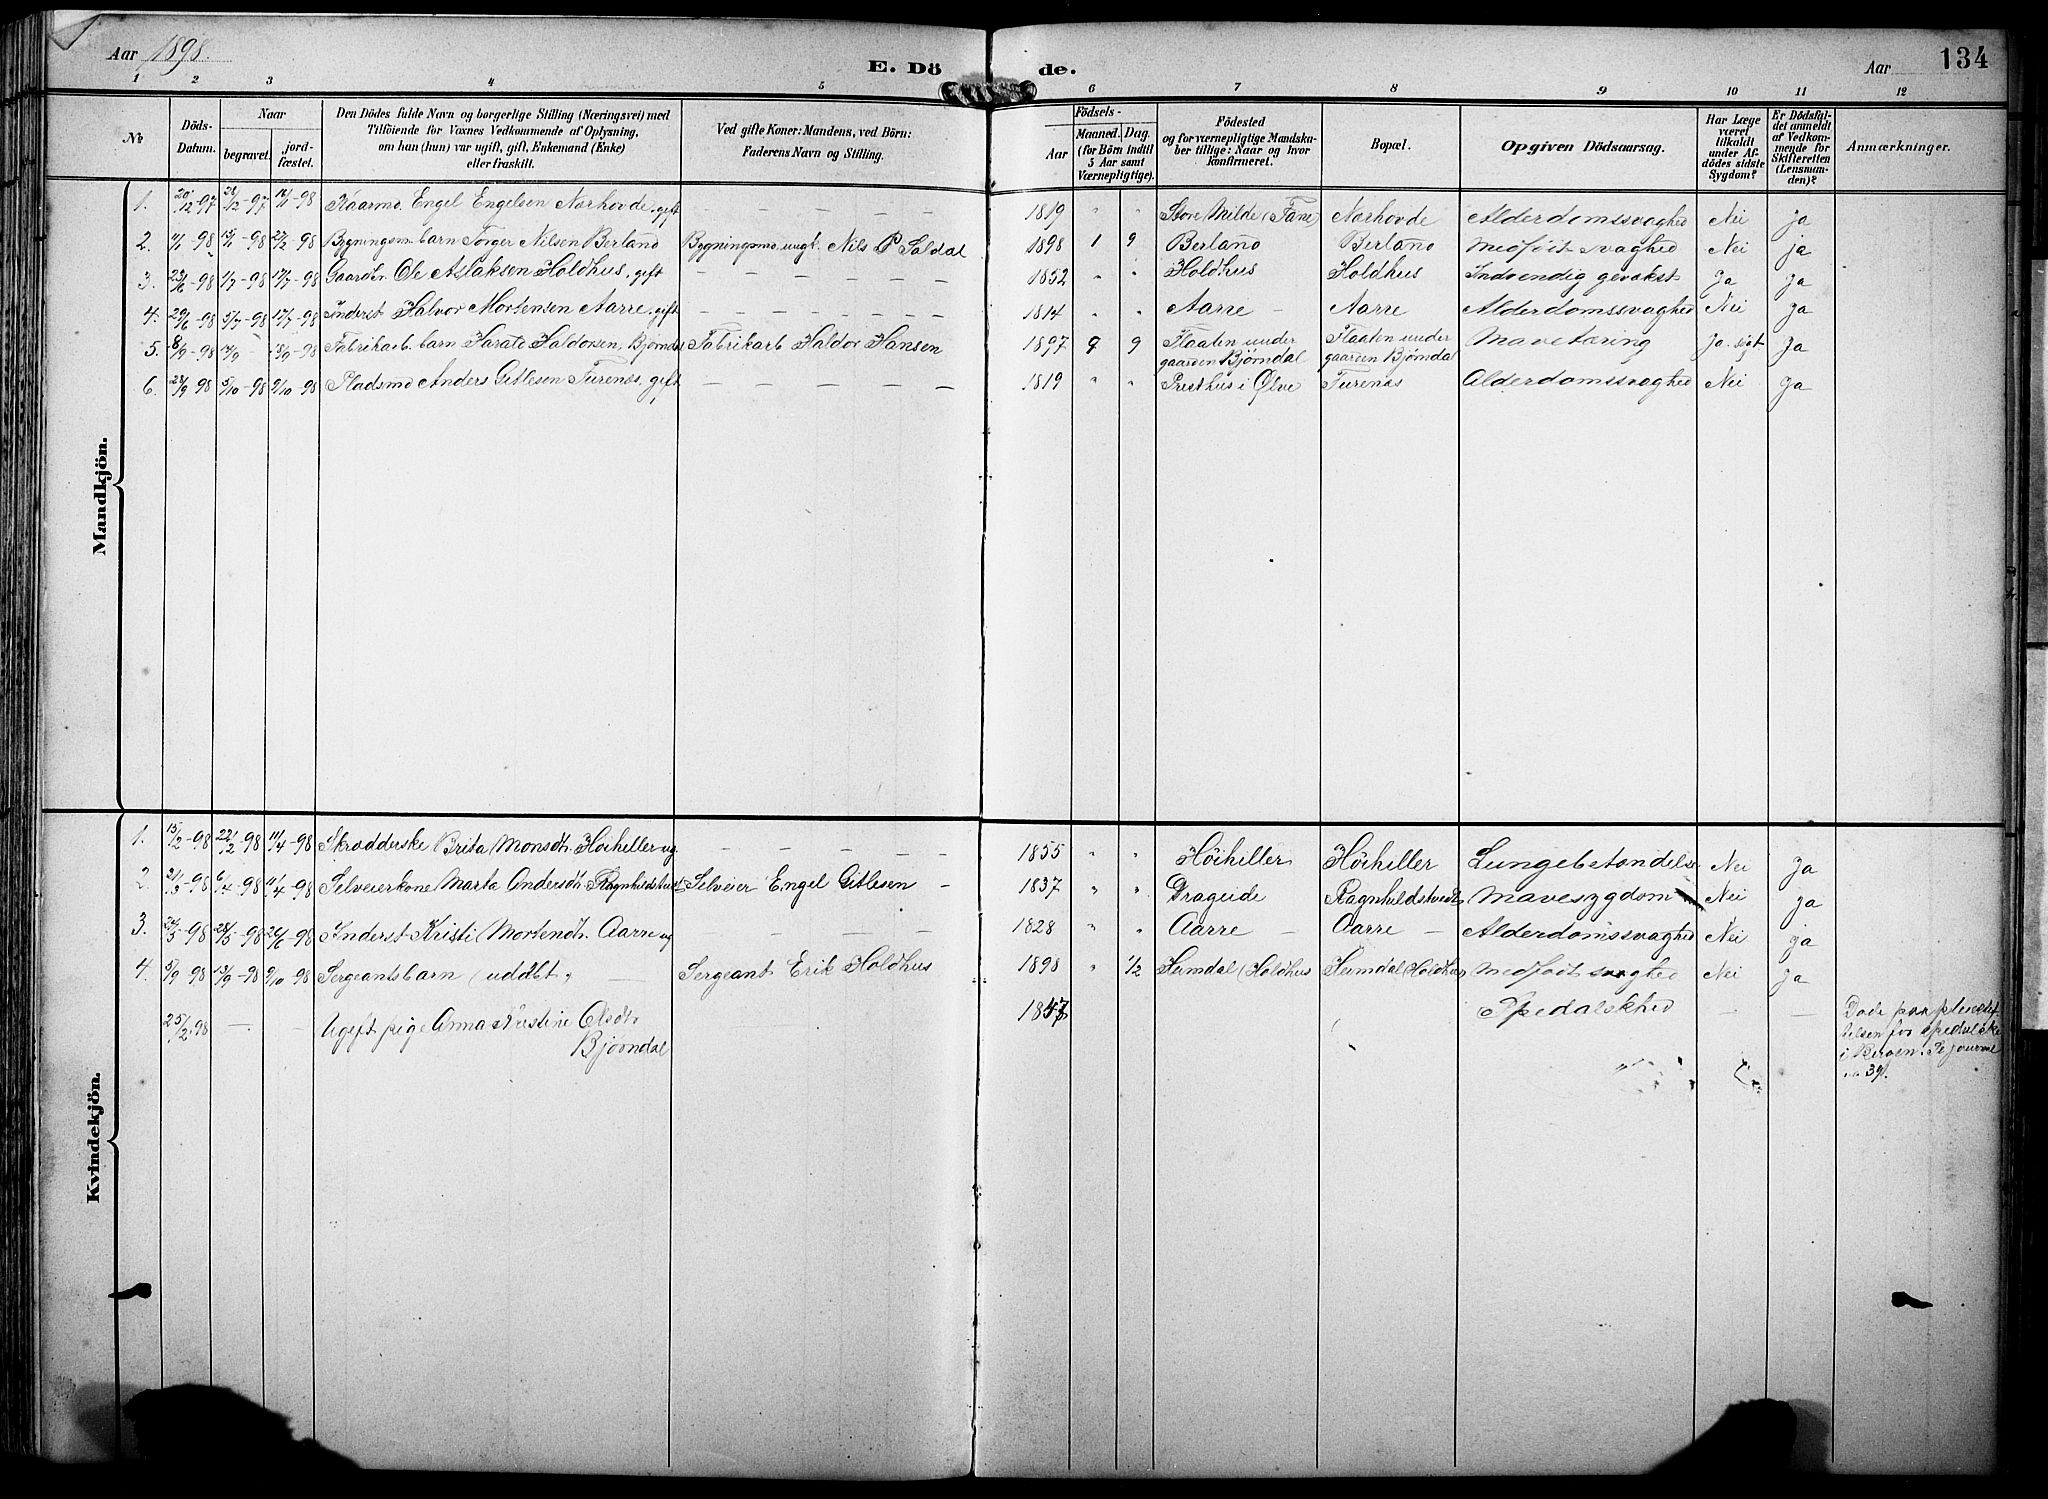 Aar 1898.
E. Dö de.
Aar 134
1 2 3 4 5 6 7 8 9 10 11 12
№
Döds-Datum.
Naar
begravet.
jord-fæstet.
Den Dödes fulde Navn og borgerlige Stilling (Næringsvei) med
Tilföiende for Voxnes Vedkommende af Oplysning,
om han (hun) var ugift, gift, Enkemand (Enke)
eller fraskilt.
Ved gifte Koner: Mandens, ved Börn:
Faderens Navn og Stilling.
Födsels-
Aar
Maaned. Dag.
(for Börn indtil
5 Aar samt
Værnepligtige).
Födested
og for værnepligtige Mandska-
ber tillige: Naar og hvor
konfirmeret.
Bopæl.
Opgiven Dödsaarsag.
Har Læge
været
tilkaldt
under Af-
dödes sidste
Sygdom?
Er Dödsfal-
det anmeldt
af Vedkom-
mende for
Skifteretten
(Lensman-
den)?
Anmærkninger.
Mandkjön.
1. 20/12-97 28/12-97 16/1-98 Kaarmd. Engel Engelsen Nærhovde, gift — — — — — 1819 " " Store Milde (Fane) Nærhovde Alderdomssvaghed Nei ja
2. 11/1-98 27/2-98 Bygningsm. barn Torger Nilsen Berland Bygningsmd. ungk. Nils P Saldal 1898 1 9 Berland Berland Medföit svaghed Nei ja
3. 23/6-98 1/7-98 17/7-98 Gaardbr. Ole Aslaksen Holdhus, gift — — — — — 1852 " " Holdhus Holdhus Indvendig gevækst Ja ja
4. 29/6-98 5/7-98 17/7-98 Inderst Halvor Mortensen Aarre, gift — — — — — 1814 " " Aarre — Aarre Alderdomssvaghed Nei ja
5. 8/9-98 14/9 - 18/9-98 Fabrikarb. barn Harald Haldorsen, Björndal Fabrikarb Haldor Hansen 1897 9 9 Flaaten under Flaaten under Mavetæring Ja. Ja
gaarden Björndal gaarden Björndal
6. 28/9-98 5/10-98 9/10-98 Pladsmd Anders Gitlesen Furenæs, gift — — — — — 1819 " " Presthus i Ølve Furenæs Alderdomssvaghed Nei Ja
Kvindekjön.
1. 15/2-98 22/2-98 11/4-98 Skrædderske Brita Monsdtr. Höihiller ug — — — — — 1855 " " Höihiller Höihiller Lungebetændelse Nei Ja
2. 31/3-98 6/4-98 11/4-98 Selveierkone Marta Andersdtr. Ragnhildstvedt Selveier Engel Gitlesen — 1837 " " Drageide Ragnhildstvedt Mavesygdom Nei ja
3. 24/5-98 28/5-98 26/6-98 Inderst Kristi Mortendtr. Aarre ug — — — — 1828 " " Aarre — Aarre — Alderdomssvaghed Nei ja
4. 5/9 98 13/9-98 9/10-98 Sergeantsbarn (uddbt.) — Sergeant Erik Holdhus 1898 " 1/2 Heimdal (Holdhus Heimdal (Holdhus Medfödt svaghed Nei Ja
25/2.98 — — Ugift pige Anna Kristine Olsdtr. 1857 Spedalskhed — — Döde paa pleiestif-
Bjorndal
telsen for spedalske
i Bergen. Se journal
no 391.